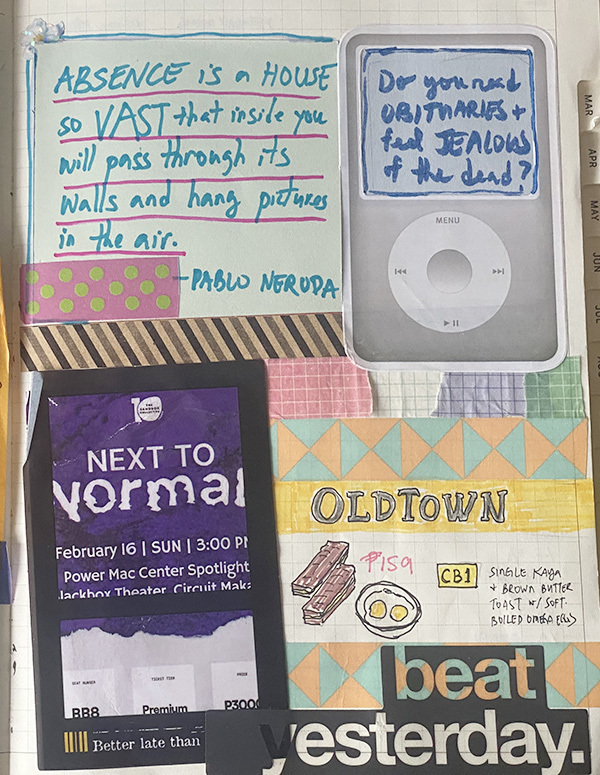 ABSENCE is a HOUSE
so VAST that inside you
will pass through its
walls and hang pictures
in the air.
-PABLO NERUDA
Do you read
OBITUARIES +
feel JEALOUS
of the dead?
MENU
MAR
APR
MAY
JUN
10
THE
SANDBOX
COLLECTIVE
NEXT TO
Normal
February 16 | SUN | 3:00 PM
Power Mac Center Spotlight
Blackbox Theater, Circuit Maka
SEAT NUMBER
TICKET TIER
PRICE
BB8
Premium
P3000
Better late than
OLDTOWN
₱159
CB1
SINGLE KAYA
+ BROWN BUTTER
TOAST W/ SOFT-
BOILED OMEGA EGGS
beat
yesterday.